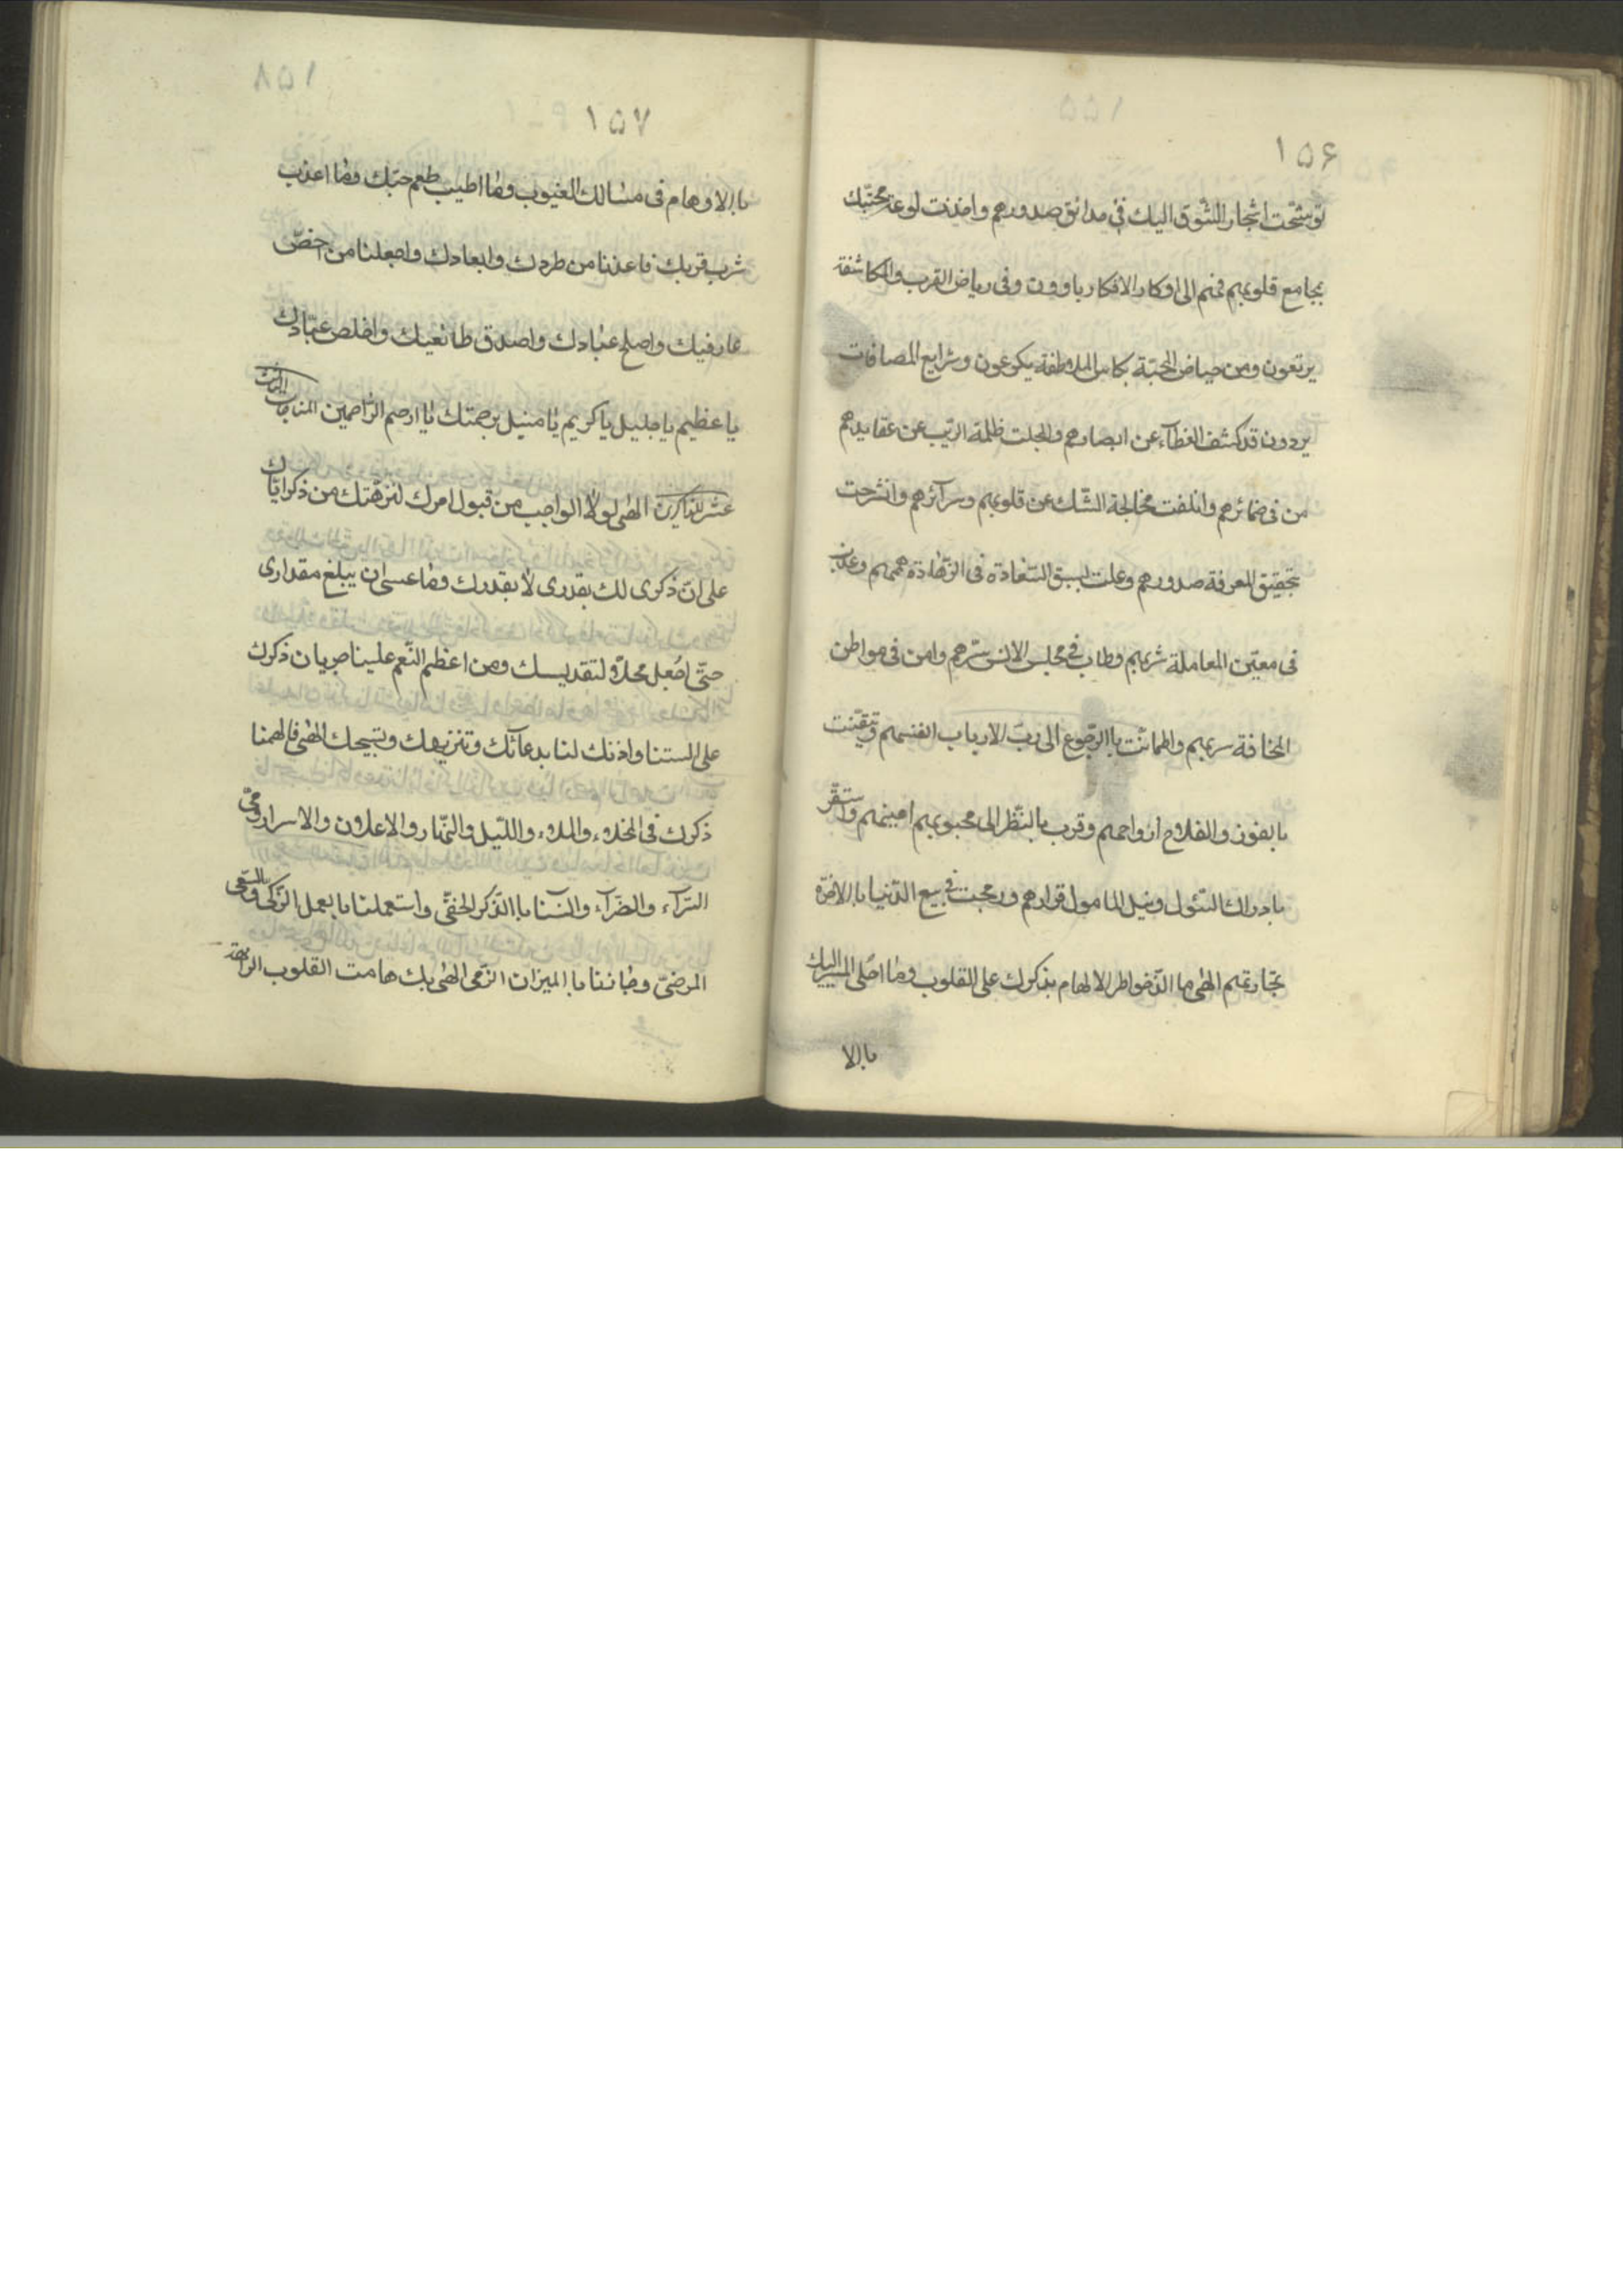 ۱۵۶
توشّحت اشجار الشّوق اليك فى حدائق صدورهم واخذت لوعة محبّتك
بمجامع قلوبهم فهم الى اوكار الافكار ياوون وفى رياض القرب والمكاشفة
يرتعون ومن حياض المحبّة بكاس الملاطفة يكرعون وشرايع المصافات
يردون قد كشف الغطآء عن ابصارهم وانجلت ظلمة الرّيب عن عقايدهم
من فى ضمائرهم وانتفت مخالجة الشّك عن قلوبهم وسرآئرهم وانشرحت
بتحقيق المعرفة صدورهم وعلت لسبق السّعادة فى الزّهادة هممهم وعذب
فى معين المعاملة شربهم وطاب فى مجلس الانس سرّهم وامن فى مواطن
المخافة سربهم واطمانّت باالرّجوع الى ربّ الارباب انفسهم وتيقّنت
بالفوز والفلاح ارواحهم وقرب بالنّظر الى محبوبهم اعينهم واستقرّ
بادراك السّئول ونيل المامول قرارهم وربحت فى بيع الدّنيا باالاخرة
تجارتهم الهى ما الذّ خواطر الالهام بذكرك على القلوب وما احلى المسير اليك
باالا
۱۵۷
باالاوهام فى مسالك الغيوب وما اطيب طعم حبّك وما اعذب
شرب قربك فاعذنا من طردك وابعادك واجعلنا من اخصّ
عارفيك واصلح عبادك واصدق طائعيك واخلص عبّادك
يا عظيم يا جليل يا كريم يا منيل برحمتك يا ارحم الرّاحمين المناجات الثالث
عشر للذاكرين الهى لولا الواجب من قبول امرك لنزّهتك من ذكرى ايّاك
على انّ ذكرى لك بقدرى لا بقدرك وما عسى ان يبلغ مقدارى
حتّى اجعل محلّا لتقديسك ومن اعظم النّعم علينا جريان ذكرك
على السنتنا واذنك لنا بدعآئك وتنزيهك وتسبيحك الهى فالهمنا
ذكرك فى الخلاء والملاء واللّيل والنّهار والاعلان والاسرار وفى
السّرآء والضّرآء وانسنا باالذّكر الخفىّ واستعملنا بالعمل الزّكى والسّعى
المرضىّ وجازنا باالميزان الوفى الهى بك هامت القلوب الوالهة